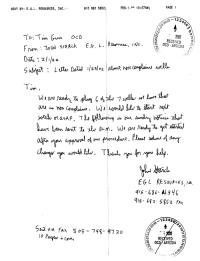 SENT BY: E.G.L. RESOURCES, INC.
PAGE 1
To: Tim Gum OCD
From: John Starch E.G.L. Resources, INC.
Date: 2/1/02
Subject: Letter Dated 1/23/02 about non compliance wells
Tim,
We are ready to plug 6 of the 7 wells we have that
are in non compliance. We would like to start next
week ASAP. The following is our sundry notices that
have been sent to the BLM. We are ready to get started
after your approval of our procedure. Please advise of any
changes you would like. Thank you for your help.
John Starch
EGL RESOURCES, INC.
915-682-5852 Fax
Send on Fax 505-748-9720
10 Pages + cover
RECEIVED
OCD - ARTESIA
RECEIVED
OCD - ARTESIA